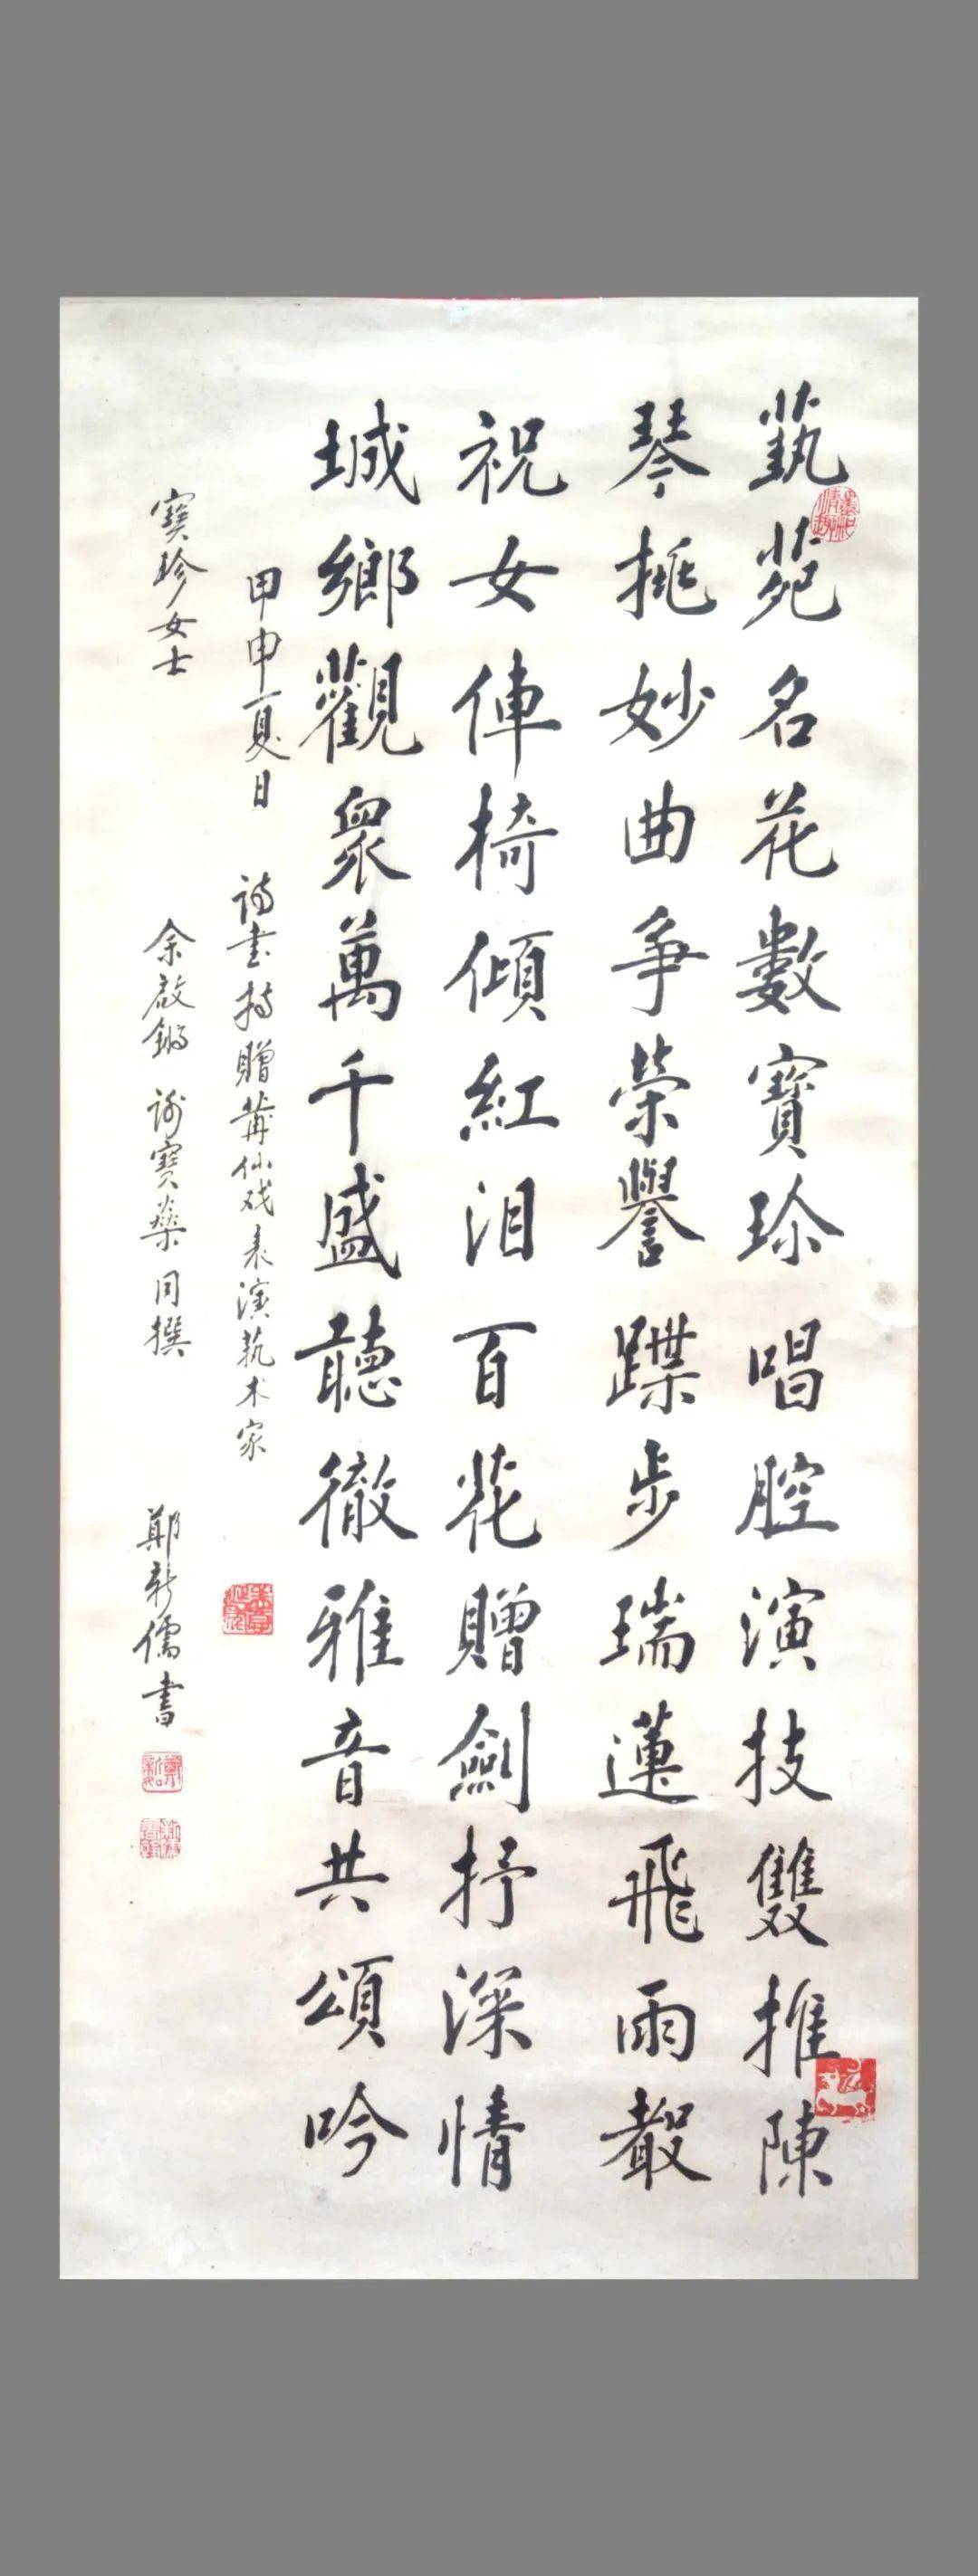 藝苑名花數寶珍唱腔演技雙推陳
琴挑妙曲爭榮譽蹀步瑞蓮飛雨
祝女俥椅傾紅淚百花贈劍抒深情
城鄉觀衆萬千盛聽徹雅音共頌吟
甲申夏日 詩書持贈莆仙戏表演藝术家
寶珍女士 余啟鏘 謝寶燊同撰 鄭新儒書